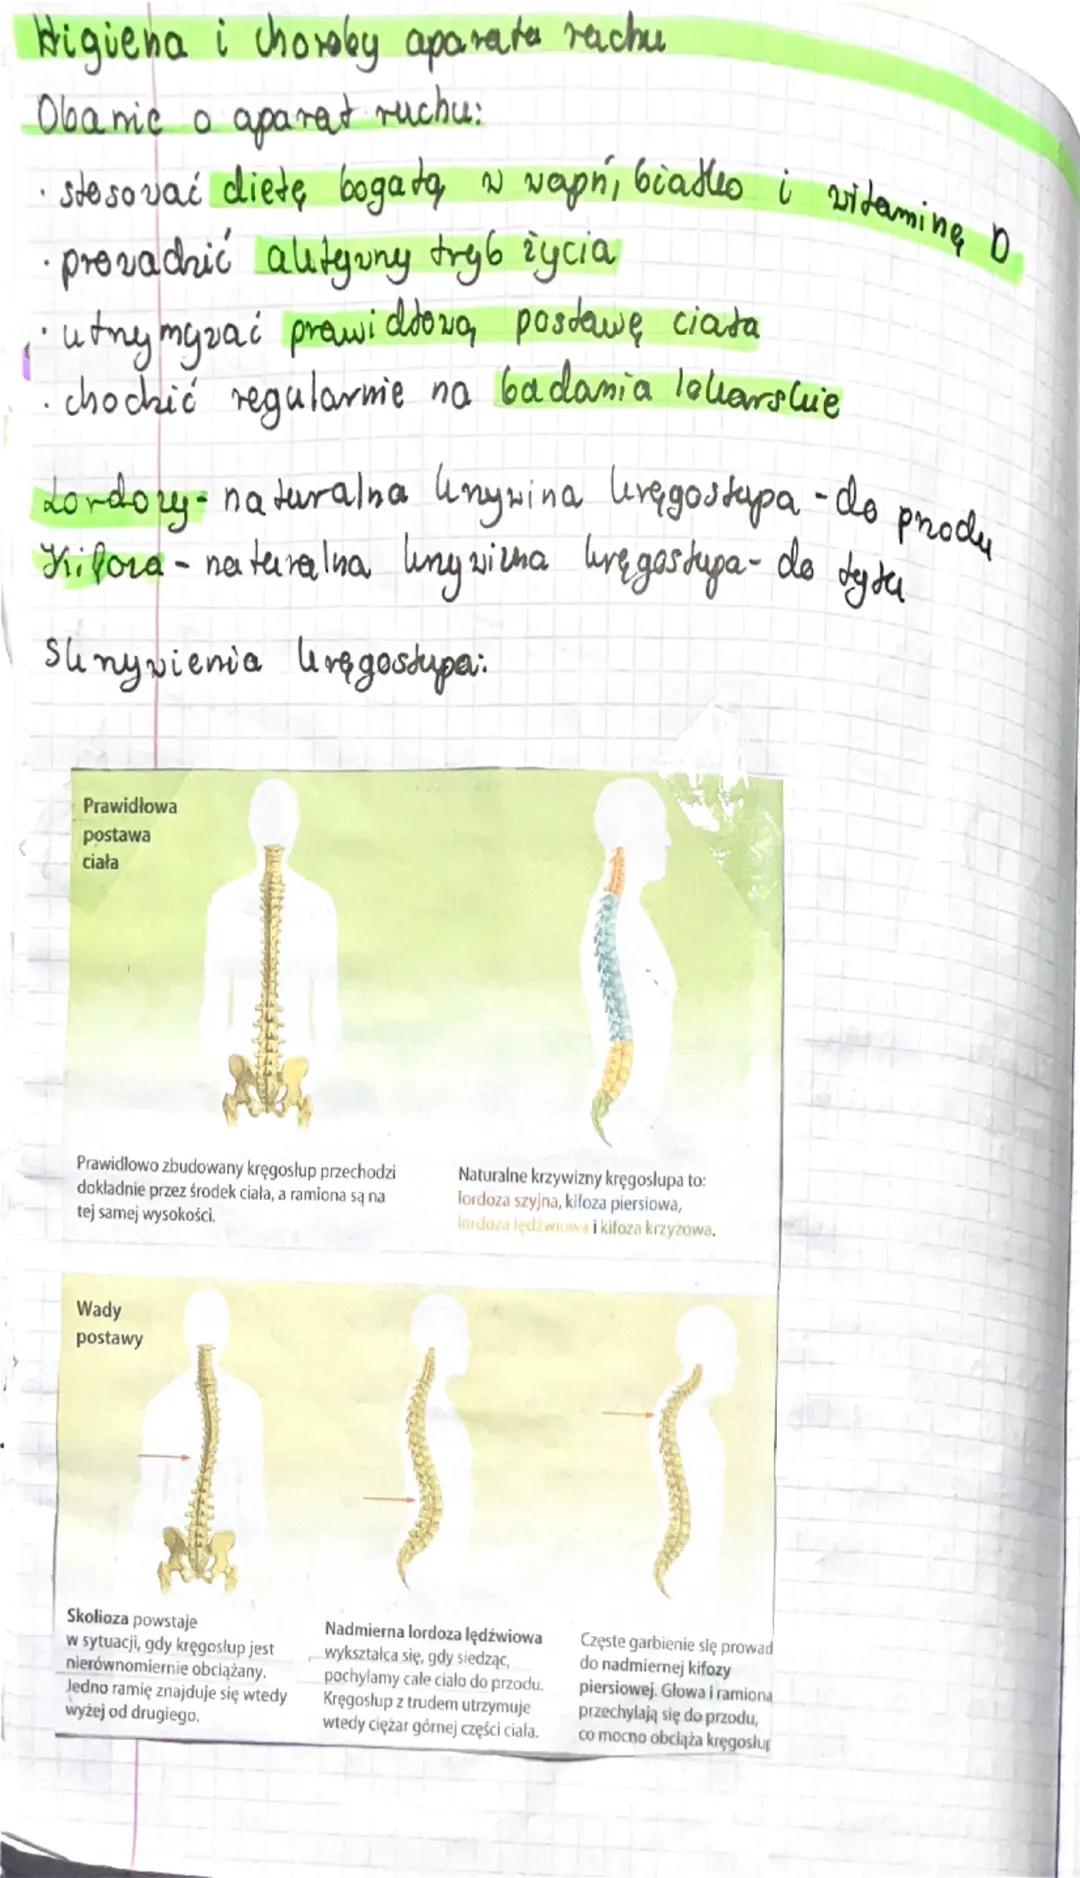 Higiena i choroby aparatu ruchu
Dbanie o aparat ruchu:
· stosować dietę bogatą w wapń, białko i witaminę D
· prowadzić aktywny tryb życia
· utrzymywać prawidłową postawę ciała
· chodzić regularnie na badania lekarskie
Lordozy - naturalna krzywizna kręgosłupa - do przodu
Kifoza - naturalna krzywizna kręgosłupa - do tyłu
Skrzywienia kręgosłupa:
Prawidłowa
postawa
ciała
Prawidłowo zbudowany kręgosłup przechodzi
dokładnie przez środek ciała, a ramiona są na
tej samej wysokości.
Naturalne krzywizny kręgosłupa to:
lordoza szyjna, kifoza piersiowa,
lordoza lędźwiowa i kifoza krzyżowa.
Wady
postawy
Skolioza powstaje
w sytuacji, gdy kręgosłup jest
nierównomiernie obciążany.
Jedno ramię znajduje się wtedy
wyżej od drugiego.
Nadmierna lordoza lędźwiowa
wykształca się, gdy siedząc,
pochylamy całe ciało do przodu.
Kręgosłup z trudem utrzymuje
wtedy ciężar górnej części ciała.
Częste garbienie się prowad
do nadmiernej kifozy
piersiowej. Głowa i ramiona
przechylają się do przodu,
co mocno obciąża kręgosłup